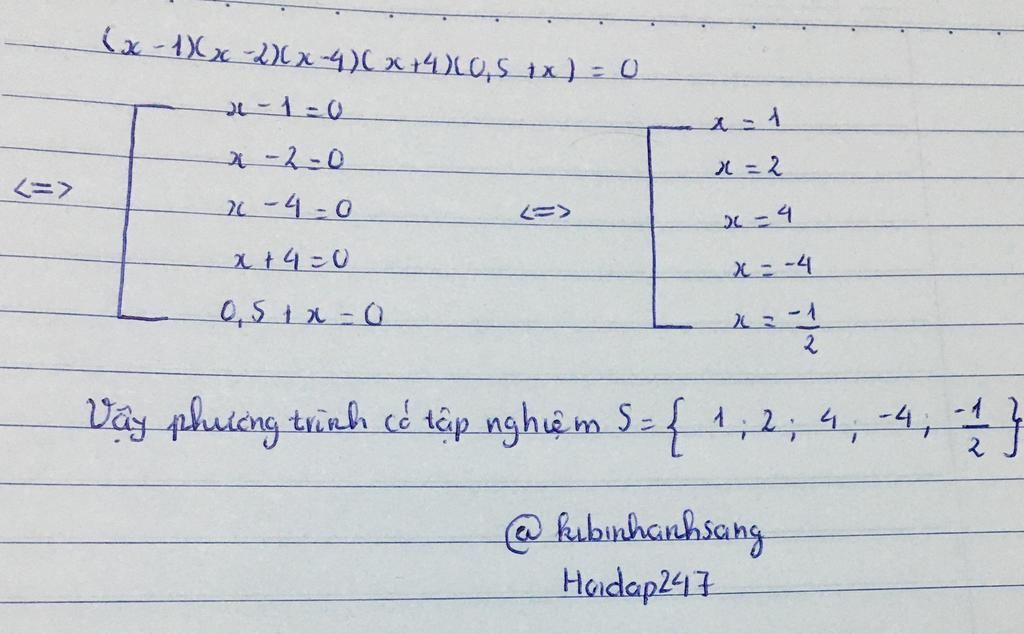 (x-1)(x-2)(x-4)(x+4)(0,5+x)=0
x-1=0
x-2=0
<=> x-4=0
x+4=0
0,5+x=0
x=1
x=2
<=> x=4
x=-4
x=-1/2
Vậy phương trình có tập nghiệm S={1;2;4;-4;-1/2}
@kibinhanhsang
Hoidap247